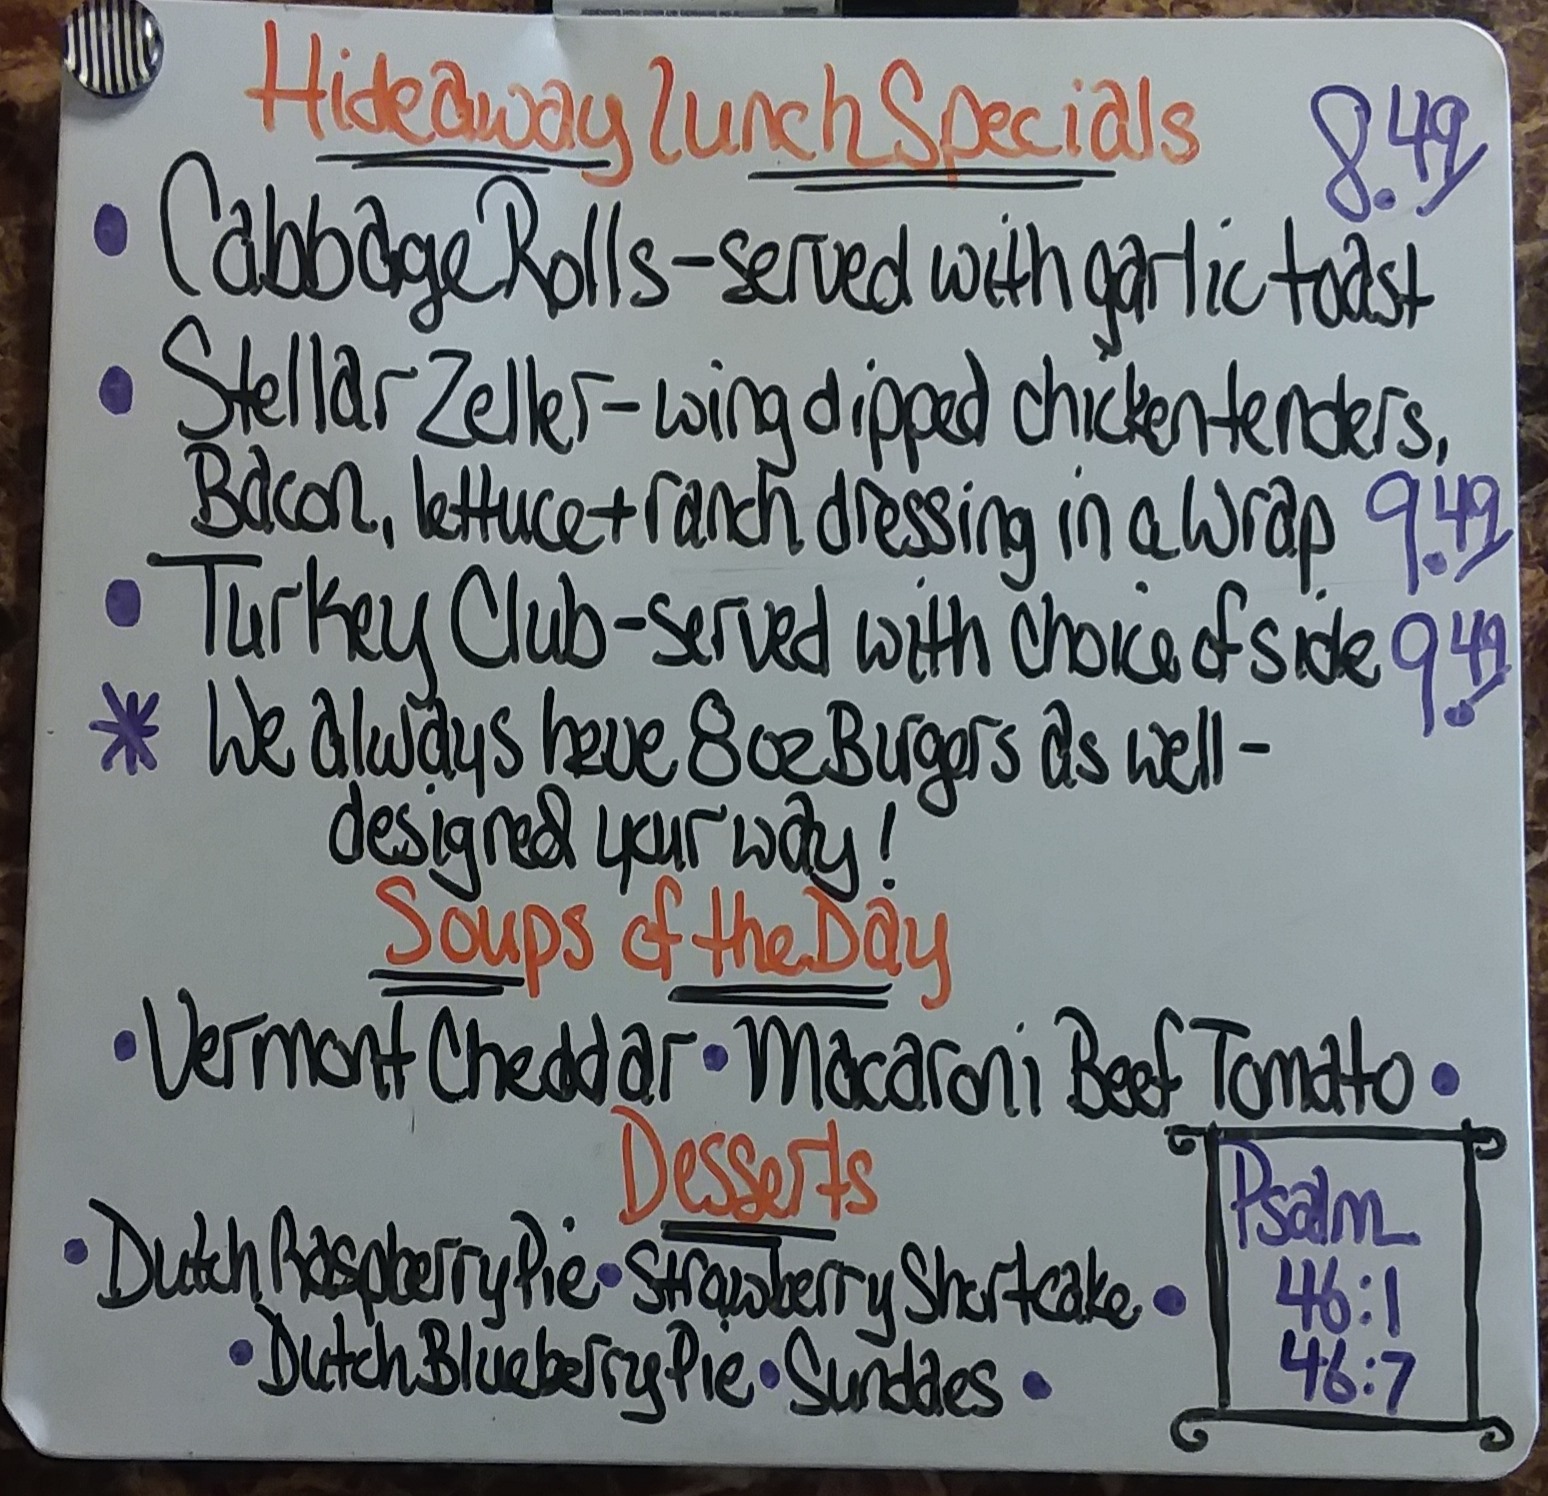 Hideaway Lunch Specials
8.49
• Cabbage Rolls - served with garlic toast
• Stellar Zeller - wing dipped chicken tenders,
Bacon, lettuce + ranch dressing in a Wrap 9.49
• Turkey Club - served with choice of side 9.49
* We always have 8 oz Burgers as well -
designed your way!
Soups of the Day
• Vermont Cheddar • Macaroni Beef Tomato •
Desserts
• Dutch Raspberry Pie • Strawberry Shortcake •
• Dutch Blueberry Pie • Sundaes •
Psalm
46:1
46:7